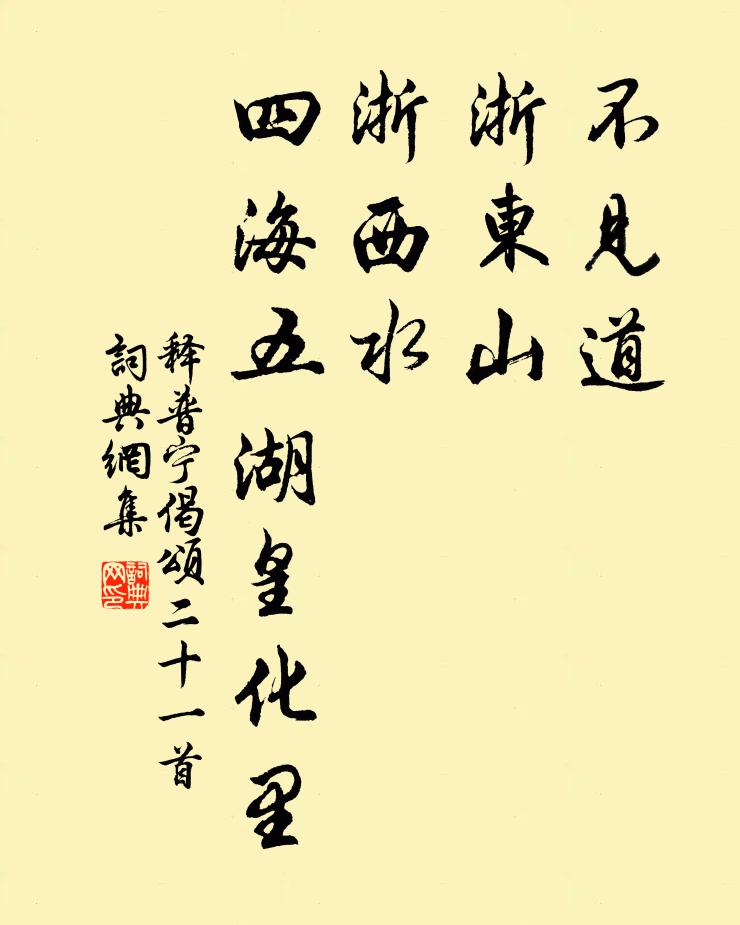 不見道
浙東山
浙西水
四海五湖皇化里
释普宁偈頌二十一首
詞典網集
詞典
网印